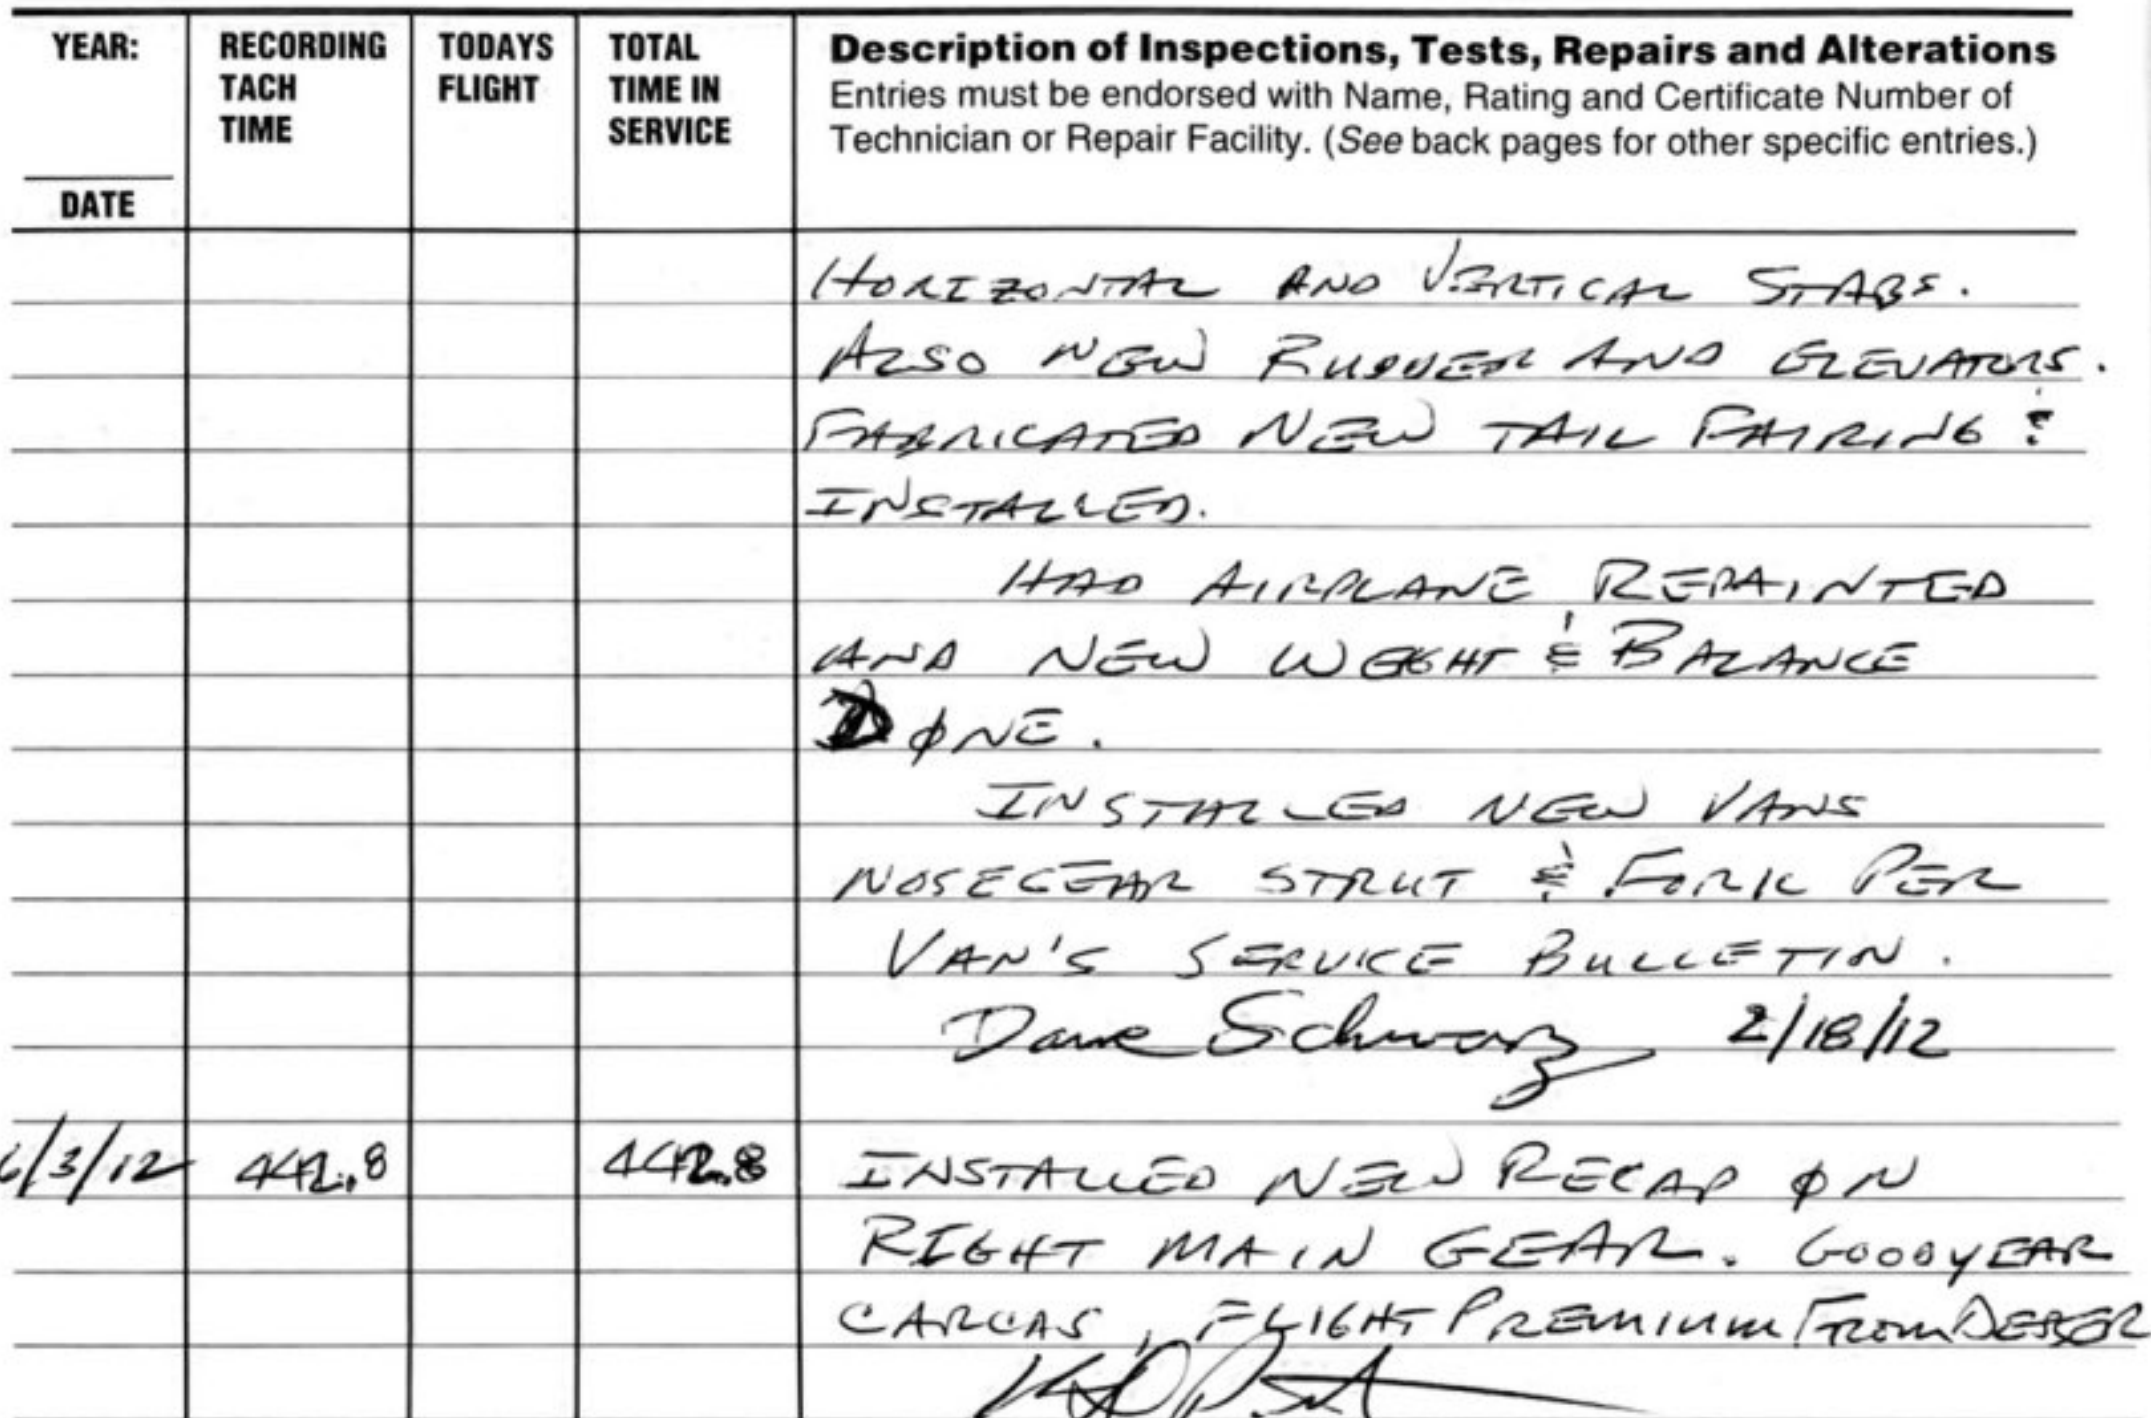 YEAR:
DATE
RECORDING
TACH
TIME
TODAYS
FLIGHT
TOTAL
TIME IN
SERVICE
Description of Inspections, Tests, Repairs and Alterations
Entries must be endorsed with Name, Rating and Certificate Number of
Technician or Repair Facility. (See back pages for other specific entries.)
HORIZONTAL AND VERTICAL STABS.
ALSO NEW RUDDER AND ELEVATORS.
FABRICATED NEW TAIL FAIRING &
INSTALLED.
HAD AIRPLANE REPAINTED
AND NEW WEGHT & BALANCE
DONE.
INSTALLED NEW VANS
NOSEGEAR STRUT & FORK PER
VAN'S SERVICE BULLETIN.
Dave Schwarz 2/18/12
6/3/12 442.8 442.8 INSTALLED NEW RECAP ON
RIGHT MAIN GEAR. GOODYEAR
CARCAS, FLIGHT PREMIUM FROM DESSER